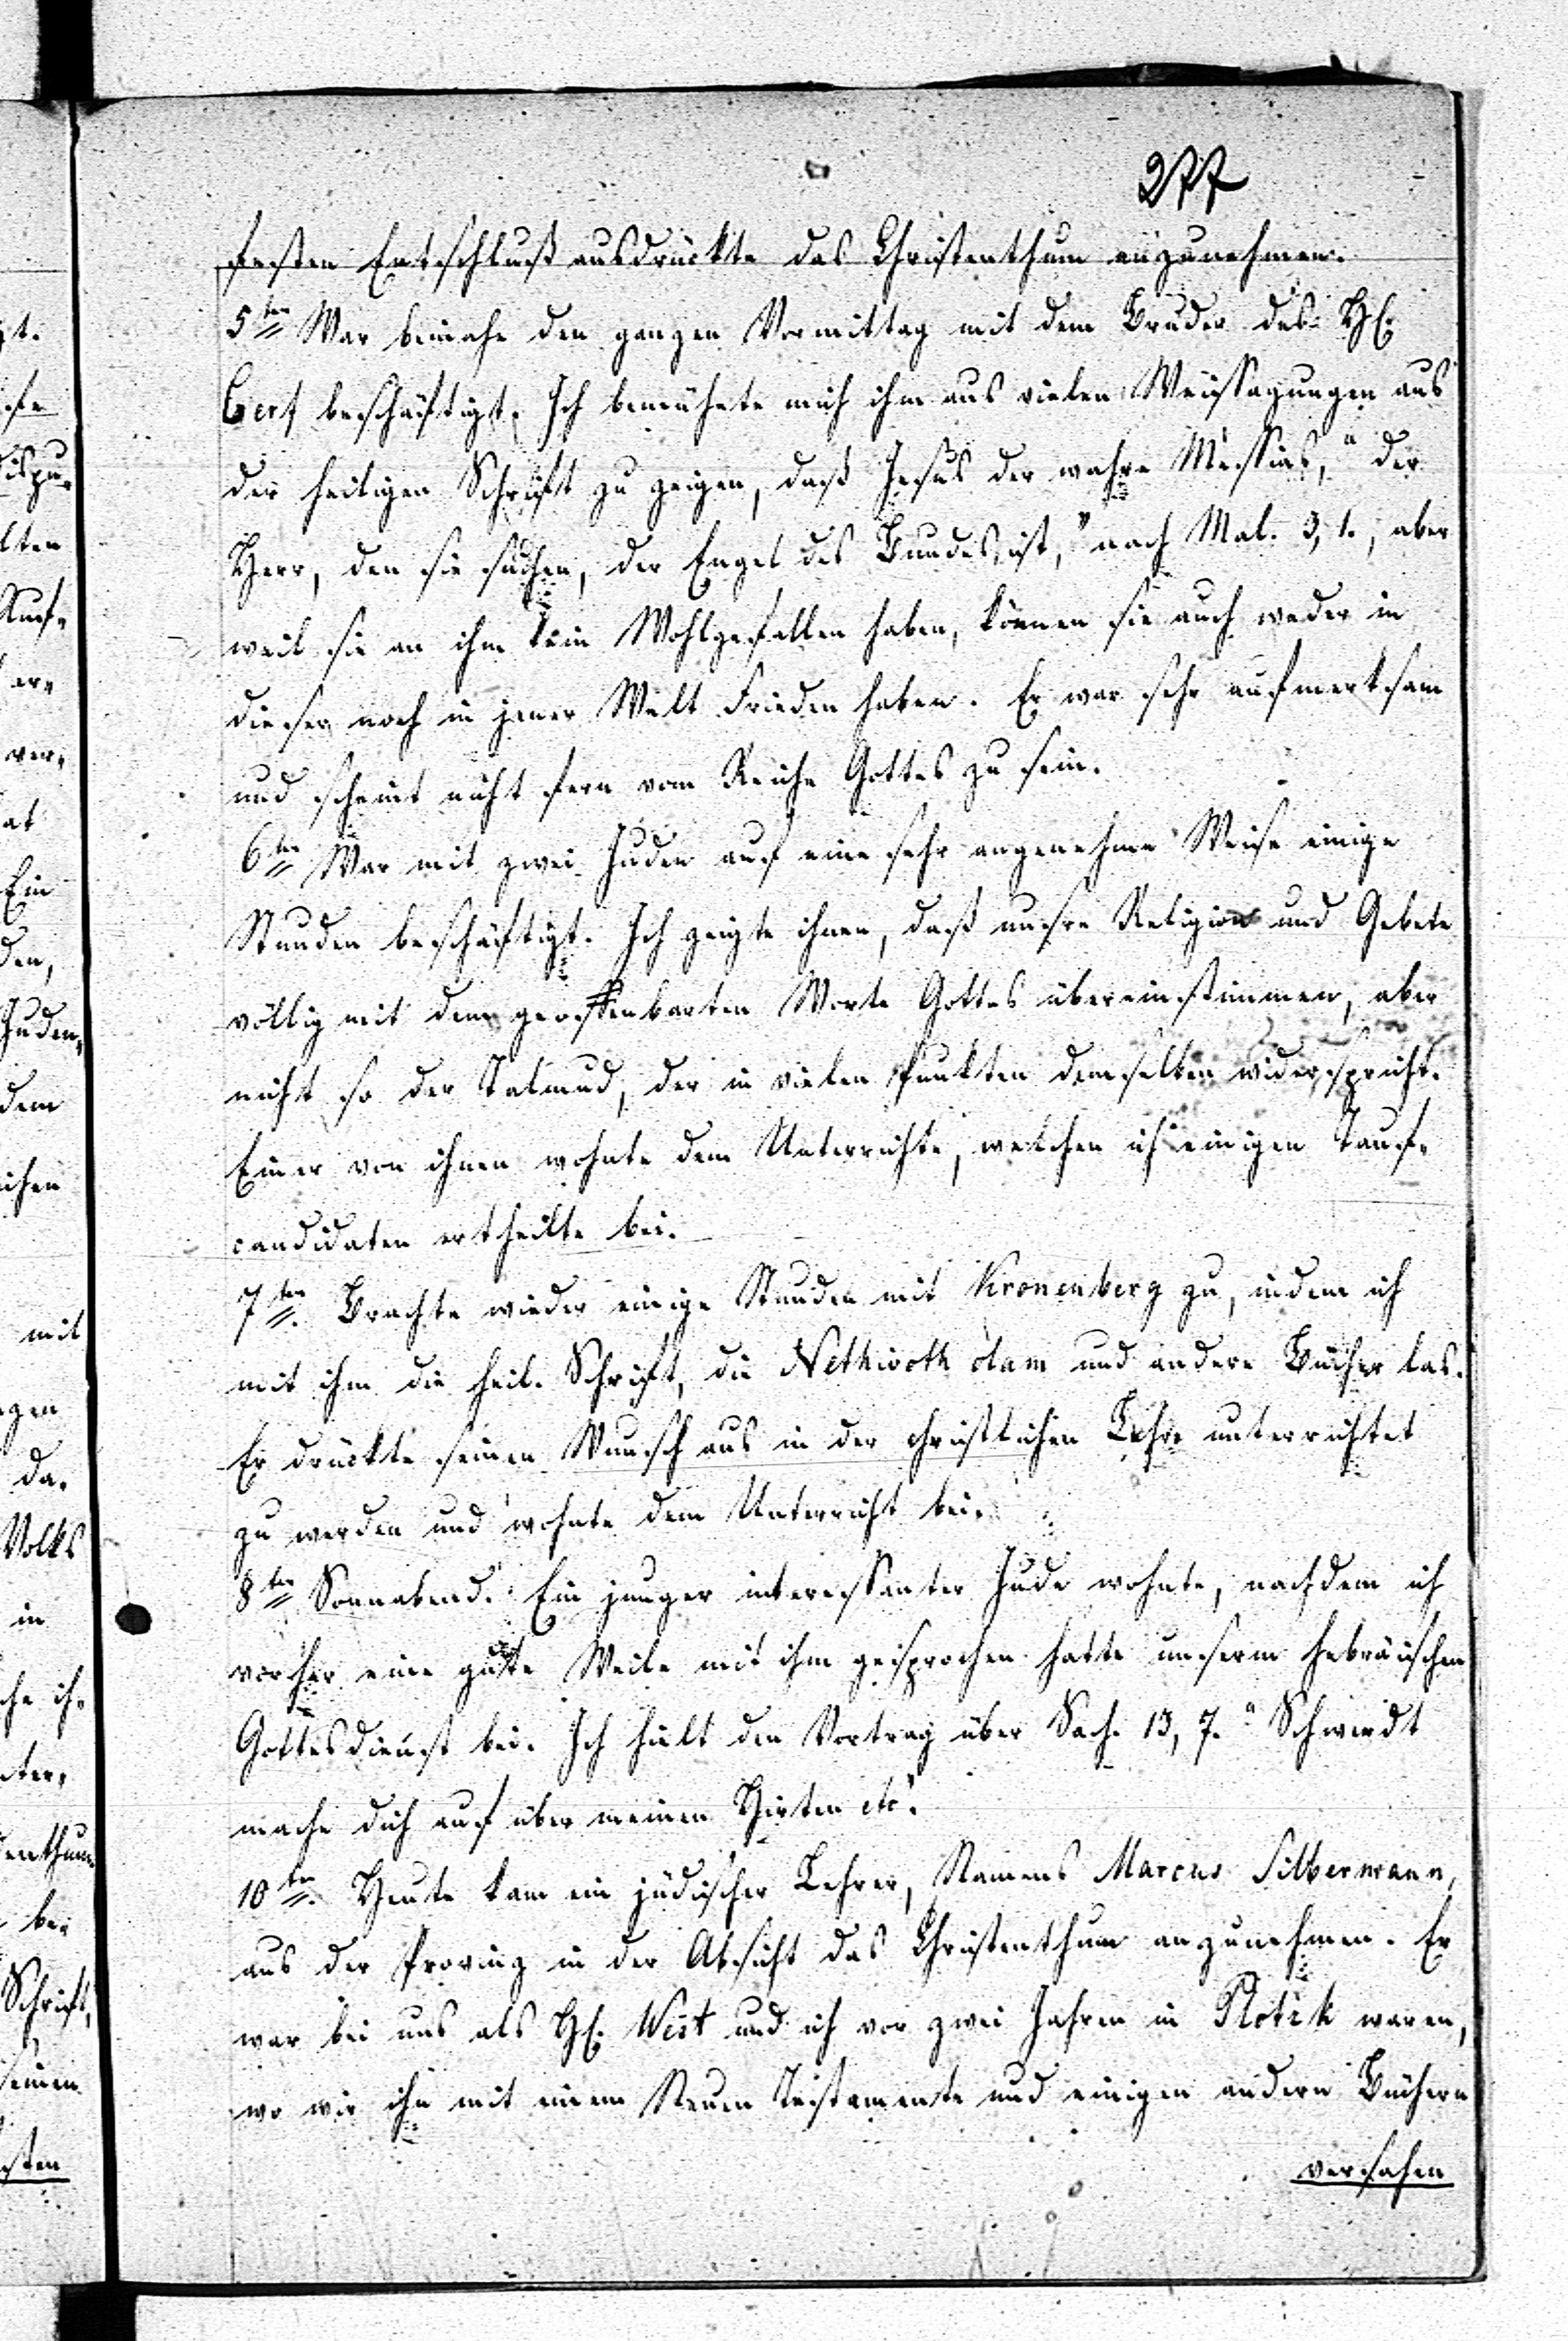 277
festen Entschluß ausdrückte das Christenthum anzunehmen.
5ten War beinahe den ganzen Vormittag mit dem Bruder des H.
Cerf beschäftigt. Ich bemühete mich ihm aus vielen Weissagungen aus
der heiligen Schrift zu zeigen, daß Jesus der wahre Messias, "der
Herr, den sie suchen, der Engel des Bundes, ist," nach Mal. 3, 1., aber
weil sie an ihm kein Wohlgefallen haben, können sie auch weder in
dieser noch in jener Welt Frieden haben. Er war sehr aufmerksam
und scheint nicht fern vom Reiche Gottes zu sein.
6ten War mit zwei Juden auf eine sehr angenehme Weise einige
Stunden beschäftigt. Ich zeigte ihnen, daß unsre Religion und Gebete
völlig mit dem geoffenbarten Worte Gottes übereinstimmen, aber
nicht so der Talmud, der in vielen Punkten demselben widerspricht.
Einer von ihnen wohnte dem Unterrichte, welchen ich einigen Tauf-
candidaten ertheilte bei.
7ten. Brachte wieder einige Stunden mit Kronenberg zu, indem ich
mit ihm die heil. Schrift, die Nethivoth olam und andere Bücher las.
Er drückte seinen Wunsch aus in der christlichen Lehre unterrichtet
zu werden und wohnte dem Unterricht bei.
8ten Sonnabend. Ein junger interessanter Jude wohnte, nachdem ich
vorher eine gute Weile mit ihm gesprochen hatte unserm hebräischen
Gottesdienst bei. Ich hielt den Vortrag über Sach. 13, 7. "Schwerdt
mache dich auf über meinen Hirten etc".
10ten. Heute kam ein jüdischer Lehrer, Namens Marcus Silbermann,
aus der Provinz in der Absicht das Christenthum anzunehmen. Er
war bei uns als H. West und ich vor zwei Jahren in Plotzk waren,
wo wir ihn mit einem Neuen Testamente und einigen andern Büchern
versahen